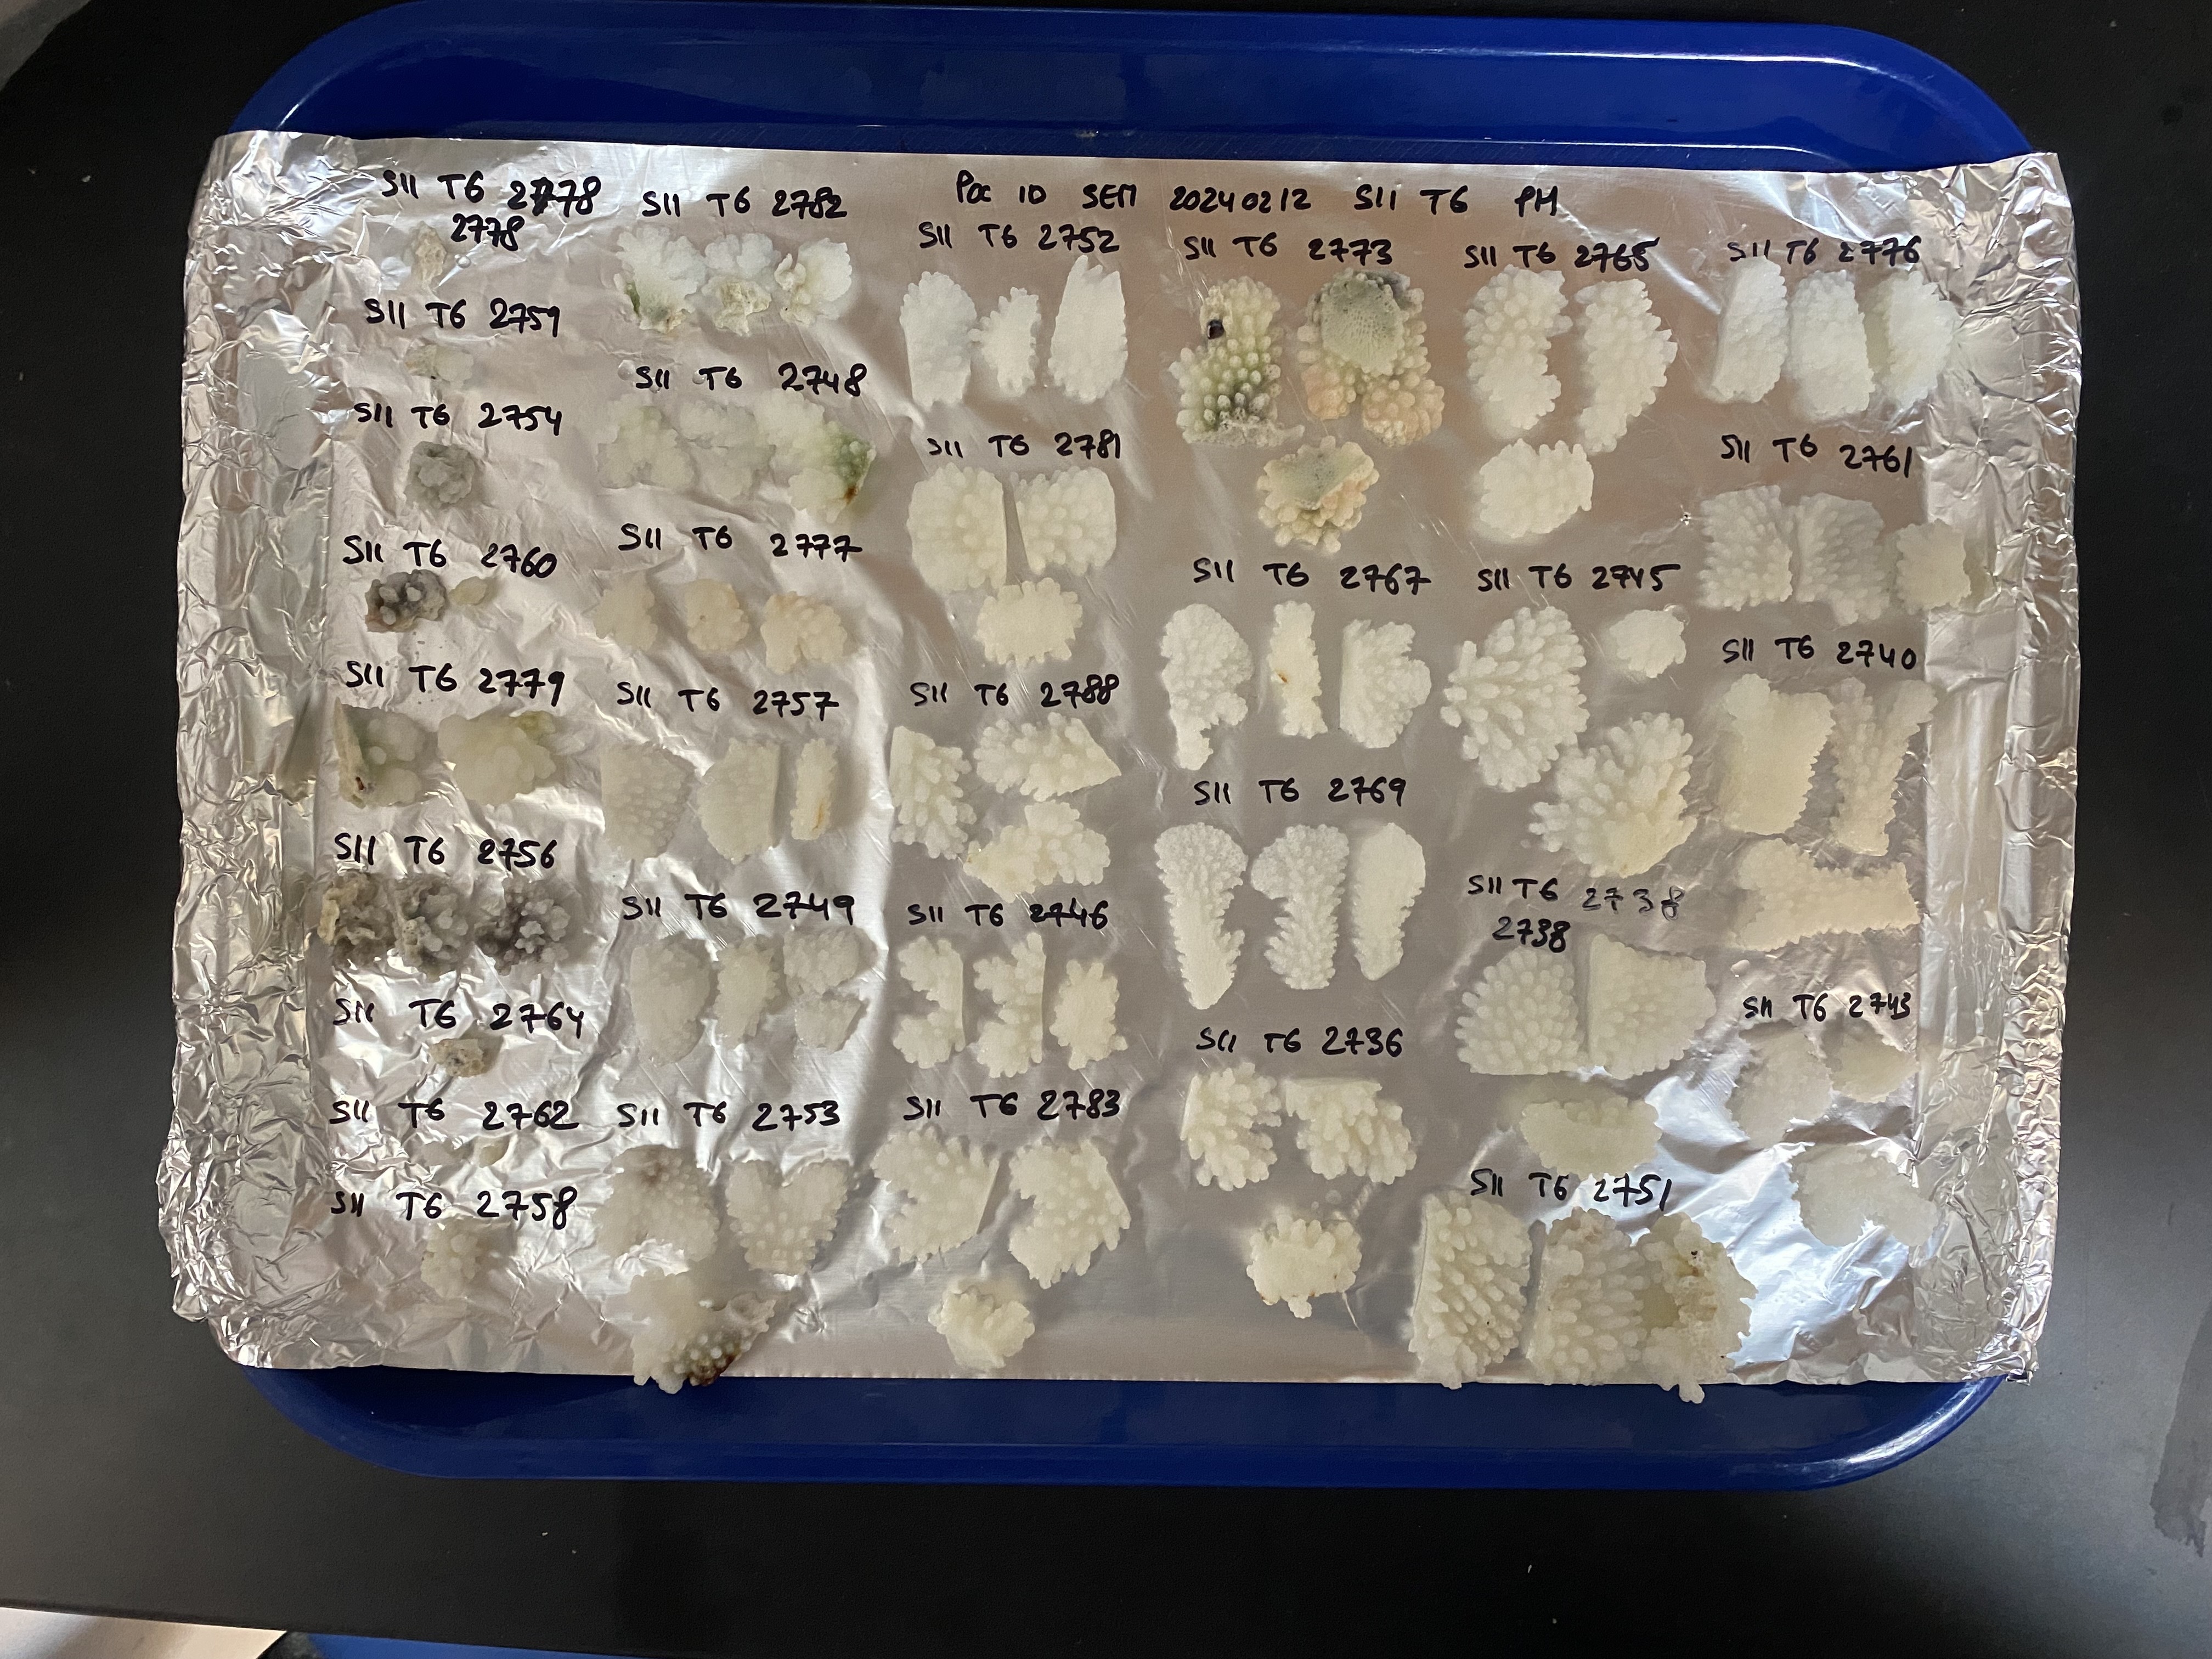 Poc ID SEM 20240212 S11 T6 PM
S11 T6 2778
2778
S11 T6 2759
S11 T6 2754
S11 T6 2760
S11 T6 2779
S11 T6 2756
S11 T6 2764
S11 T6 2762
S11 T6 2758
S11 T6 2782
S11 T6 2748
S11 T6 2777
S11 T6 2757
S11 T6 2749
S11 T6 2753
S11 T6 2752
S11 T6 2781
S11 T6 2788
S11 T6 2746
S11 T6 2783
S11 T6 2773
S11 T6 2767
S11 T6 2769
S11 T6 2736
S11 T6 2765
S11 T6 2745
S11 T6 2738
2738
S11 T6 2751
S11 T6 2776
S11 T6 2761
S11 T6 2740
S11 T6 2743